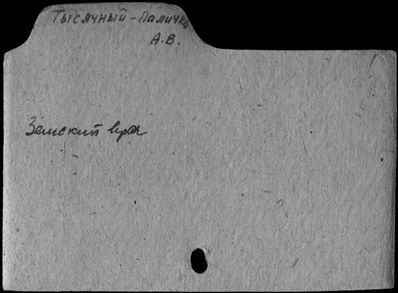 Тысячный-Паличко
А.В.
Земский врач